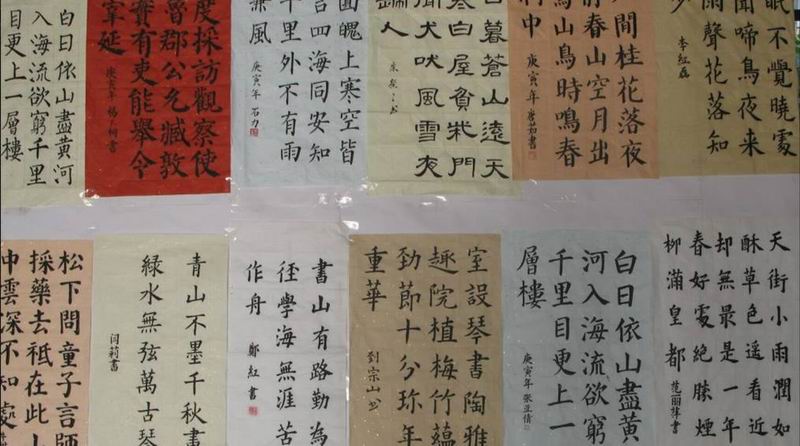 眠不覺曉處
聞啼鳥夜來
雨聲花落知
少
李紅磊
間桂花落夜
春山空月出
山鳥時鳴春
中
庚寅年
日暮蒼山遠天
寒白屋貧柴門
聞犬吠風雪夜
人
圓魄上寒空皆
言四海同安知
千里外不有雨
兼風
庚寅年 石力
度採訪觀察使
魯郡公允臧敦
實有吏能舉今
宰延
白日依山盡黃河
入海流欲窮千里
目更上一層樓
天街小雨潤如
酥草色遥看近
却無最是一年
春好處絶勝煙
柳滿皇都
白日依山盡黃
河入海流欲窮
千里目更上一
層樓
庚寅年
室設琴書陶雅
趣院植梅竹蘊
勁節十分珎年
重華
劉宗山书
書山有路勤為
徑學海無涯苦
作舟
鄭紅書
青山不墨千秋畫
綠水無弦萬古琴
闫莉書
松下問童子言師
採藥去祗在此山
中雲深不知處